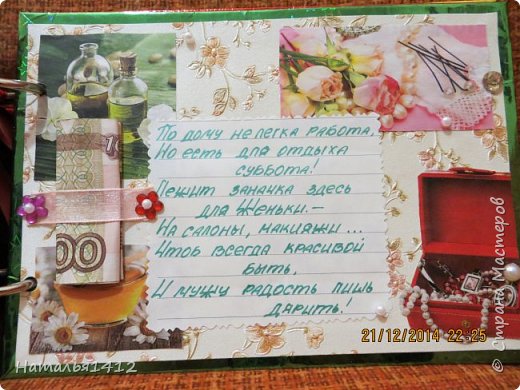 По дому нелегка работа,
Но есть для отдыха
суббота!
Лежит заначка здесь
для Женьки.—
На салоны, макияжи...
Чтоб всегда красивой
быть,
И мужу радость лишь
дарить!
10
00
21/12/2014 22:25
Наталья1412
© Страна Мастеров